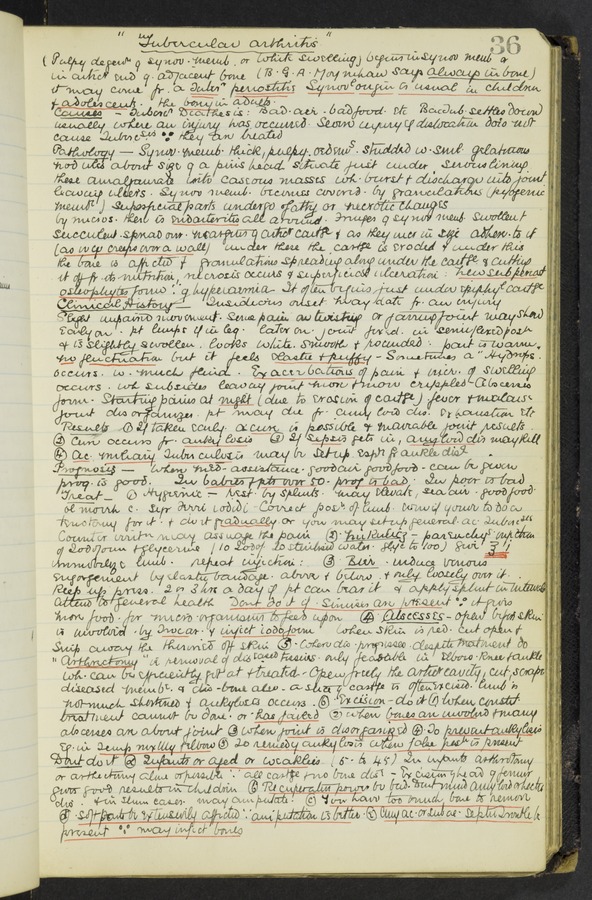 36
"Tubercular arthritis"
(Pulpy degenn of synov. memb. or White swelling) begins in synov memb &
in artic end of adjacent bone (B. G. A. Moynihan says always in bone)
it may come fr. a Tuberc periostitis Synovl origin is usual in children
& adolescent. the bony in adults.
Causes — Tuberc Diathesis: Bad air. bad food. etc settles down
usually where an injury has occurred. Severe injury & dislocation does not
cause Tuberc they are treated
Pathology — Synov. memb thick, pulpy, studded w. smll gelatinous
nodules about size of a pins head situate just under lining
these amalgamate into caseous masses wh. burst & discharge into joint
leaving ulcers. Synov memb. becomes covered by granulations (pyogenic
memb) Superficial parts undergo fatty or necrotic changes
by micros. there is endarteritis all around. Fringes of synov memb. swollen &
succulent spread over margins of artic cartge & as they incr in size adhere to it
(as ivy creeps over a wall) under these the cartge is eroded & under this
the bone is affected & granulations spreading along under the cartge & cutting
it off fr its nutrition, necrosis occurs & superficial ulceration: new subperiost
osteophytes form hyperaemia. It often begins just under epiphysl cartge
Clinical History — Insidious onset may date fr. an injury
Slight impaired movement. Some pain on twisting or jarring joint may show
Early on. pt limps if in leg. later on. joint fixd. in semiflexed post
& is slightly swollen. looks white. smooth & rounded. part is warm.
no fluctuation but it feels elastic & puffy — Sometimes a "Hydrops."
occurs. w. much fluid. Exacerbations of pain & incr. of swelling
occurs. wh subsides leavg joint more & more crippled — Abscess
form. Starting pains at night (due to erosion of cartge) fever & malaise
joint disorganizes. pt may die fr. amyloid dis. Exhaustion etc
Results ① If taken early a cure is possible & movable joint results
② Cure occurs fr. ankylosis ③ If sepsis sets in, amyloid dis may kill
④ Ac. miliary Tuberculosis may be set up esp. fr ankle dist
Prognosis — When med. assistance. good air good food. can be given
prog is good. In babies & pts over 50. prog is bad. In poor is bad
Treat — ① Hygienic — Rest by splints. may elevate, sea air. good food.
ol morrh c. Syr Ferri iodidi. Correct post of limb. even if you have to do a
tenotomy for it. & do it gradually or you may set up general ac. Tubercsis
Counter irritn may assuage the pain ② — injection
of iodoform & glycerine (10 iodof 20 water glyc to 100) give ʒi
Immobilize limb. repeat injection: ③ Bier. induce venous
engorgement by elastic bandage. above & below & only loosely over it.
Keep up press. 2 or 3 hrs a day if pt can bear it & apply splint in interval
attend to general health Dont do it if sinuses are present ∵ it gives
more food for micro organisms to feed upon ④ Abscesses — open before skin
is involved. by Trocar & inject iodoform When skin is red. cut open &
snip away the thinned off skin ⑤ When dis. progresses despite treatment do
"Arthrectomy" ie removal of diseased tissues. only feasable in Elbow. Knee & ankle
wh. can be efficiently got at & treated — Open freely the artic cavity, cut, scrape
diseased memb. & dis. bone also — a slice of cartge is often excised. limb is
not much shortened & ankylosis occurs. ⑥ Excision — do it ① When constit
treatment cannot be done. or has failed ② when bones are involved & many
abscesses are about joint ③ when joint is disorganized ④ To prevent ankylosis
Eg. in Temp maxlly & elbow ⑤ To remedy ankylosis when false post is present
Dont do it ⓐ Infants or aged or weaklies (5 - to 45) In infants arthrotomy
or arthrectomy alone if possible ∵ all cartge & no bone dist — Excision of head of femur
gives good results in children ⓑ Recuperative power be bad. amyloid
dis. & in slum cases. may amputate. ⓒ You have too much bone to remove
ⓓ soft parts be extensively affected ∵ amputation is better. ⓔ any ac. or subac. septic trouble be
present ∵ may infect bones